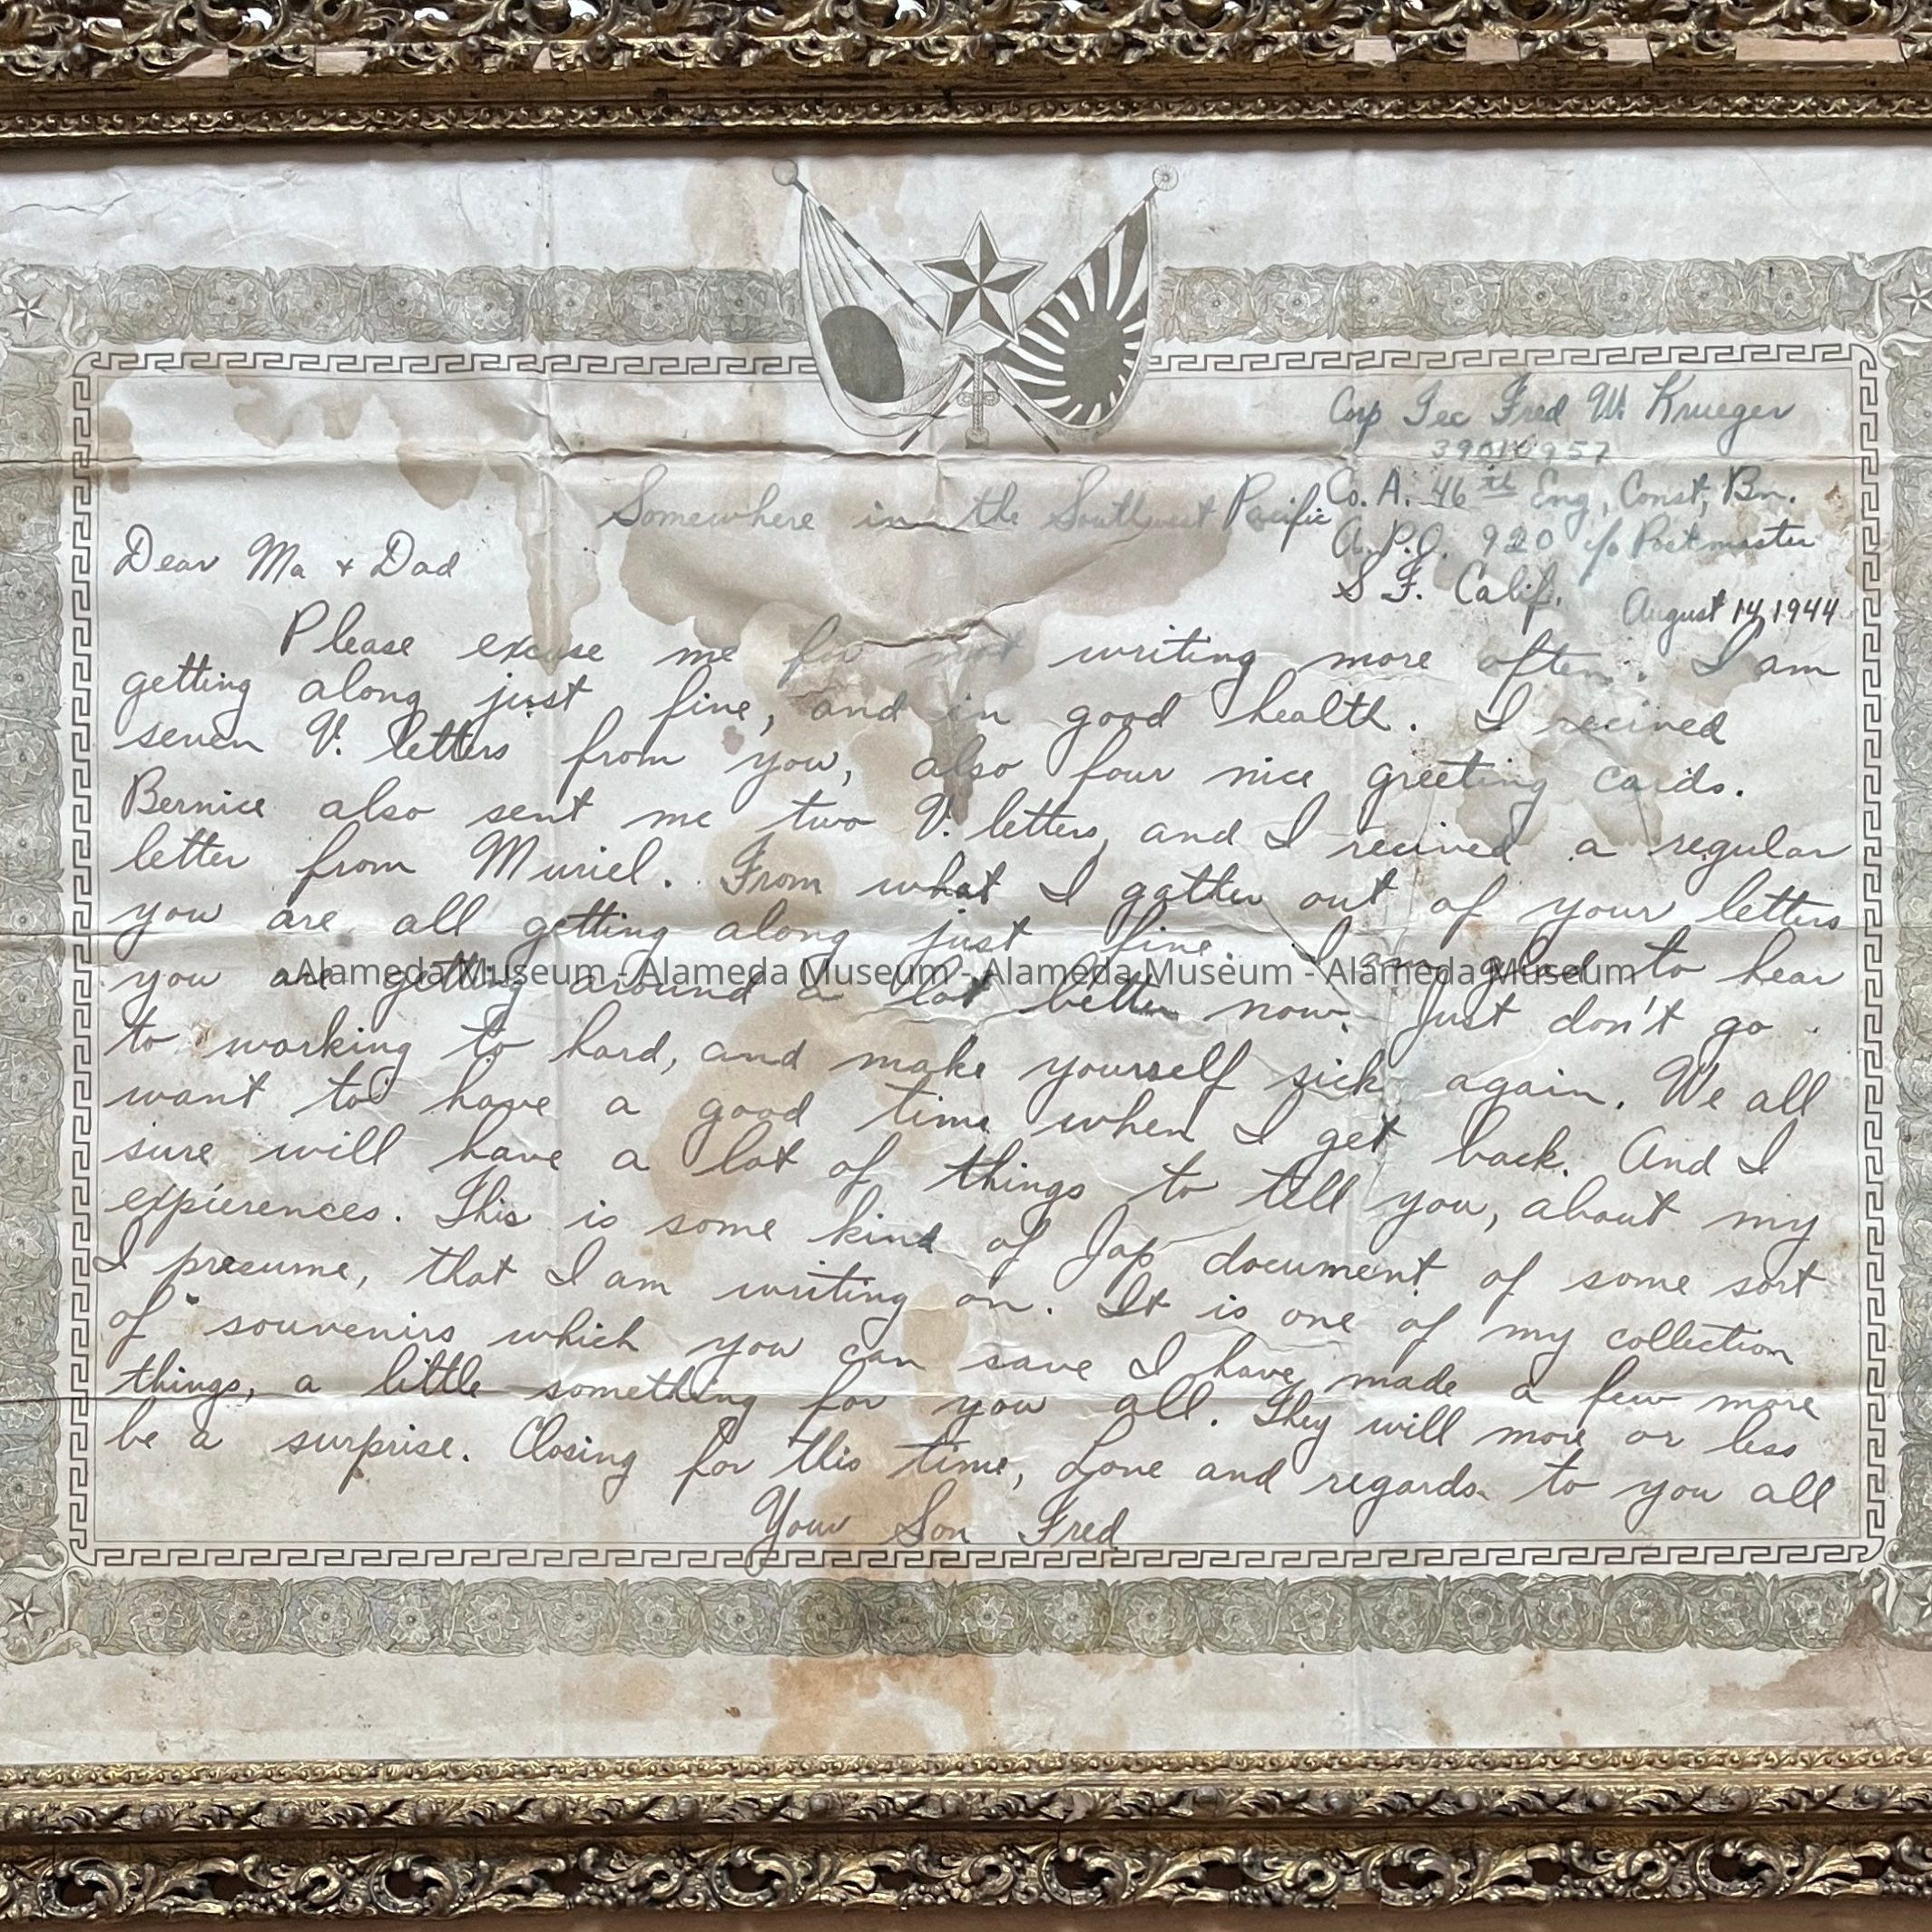 Corp Tec Fred W. Krueger
Co. A. 46th Eng, Const, Bn.
Somewhere in the Southwest Pacific
A.P.O. 920 c/o Postmaster
S F. Calif.
August 14, 1944
Dear Ma + Dad
Please excuse me for not writing more often. I am
getting along just fine, and in good health. I recived
seven V. letters from you, also four nice greeting cards.
Bernice also sent me two V. letters, and I recived a regular
letter from Muriel. From what I gatter out of your letters
you are all getting along just fine. I am glad to hear
you are getting around a lot better now. Just don't go
to working to hard, and make yourself sick again. We all
want to have a good time when I get back. And I
sure will have a lot of things to tell you, about my
expierences. This is some kind of Jap document of some sort
I presume, that I am writing on. It is one of my collection
of souvenirs which you can save I have made a few more
things, a little something for you all. They will more or less
be a surprise. Closing for this time, Love and regards to you all
Your Son Fred
Alameda Museum - Alameda Museum - Alameda Museum - Alameda Museum